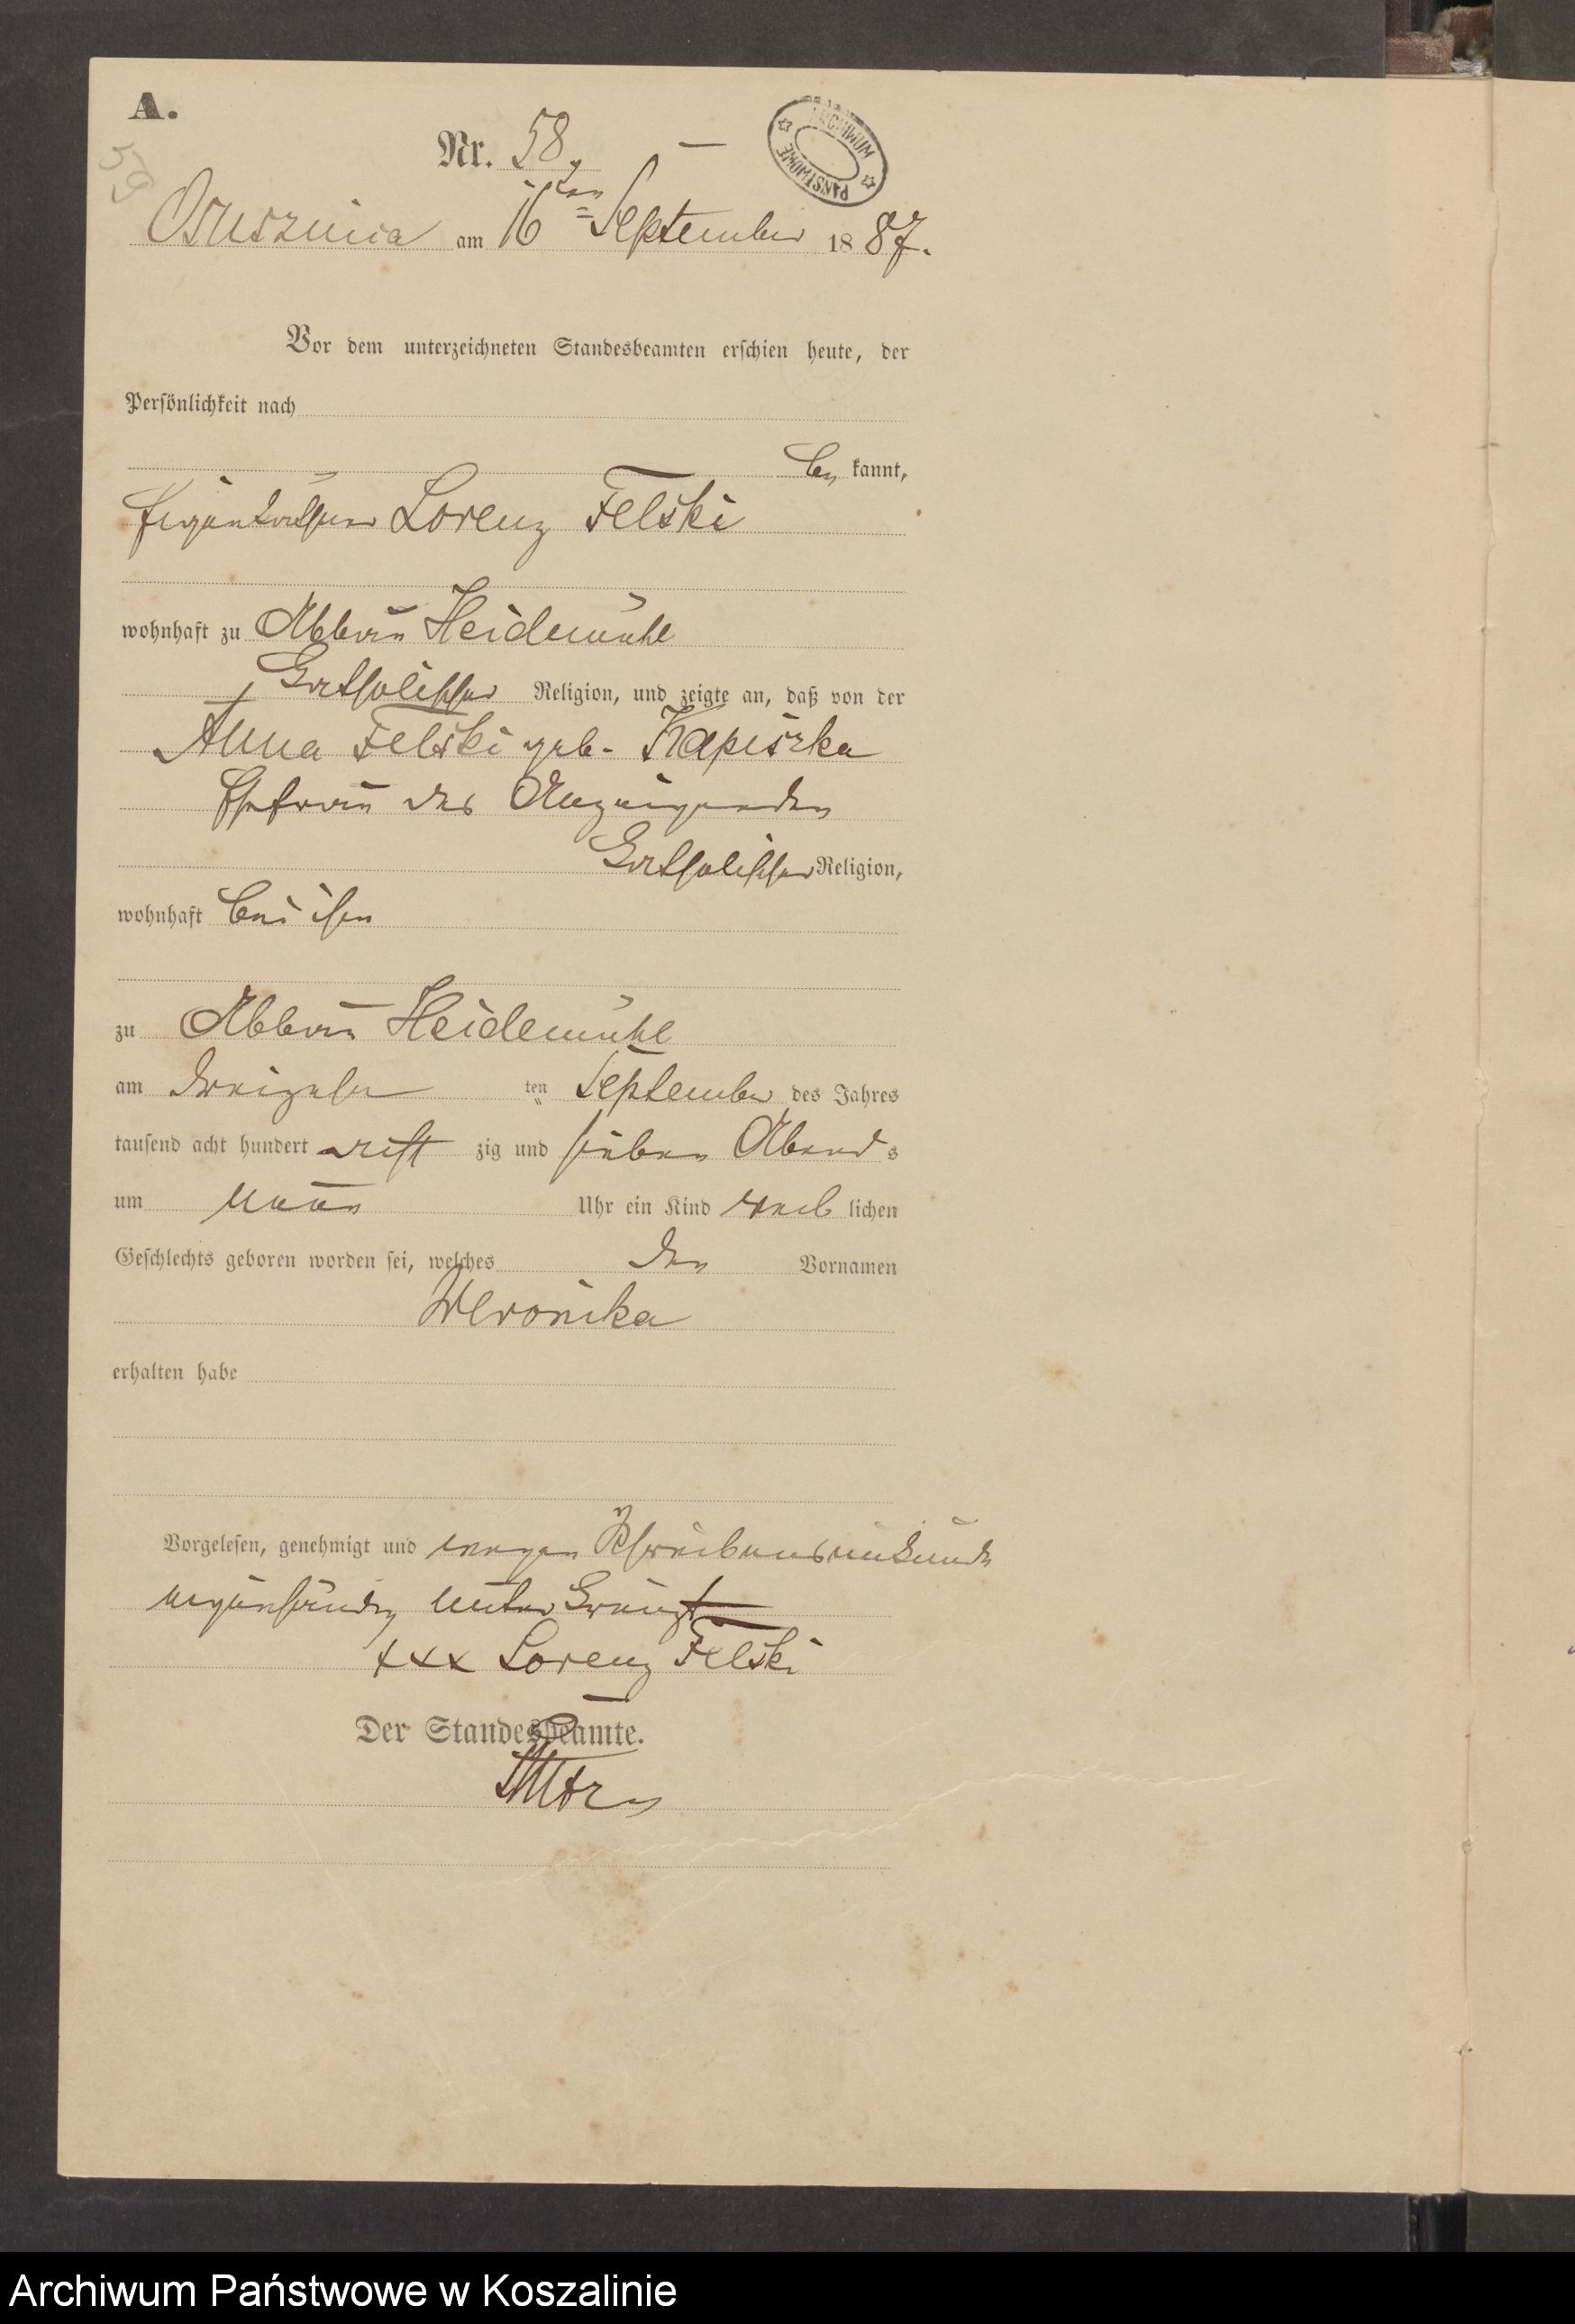 A.
59
Nr. 58.
ARCHIWUM PAŃSTWOWE
Osusznica am 16ten September 1887.
Vor dem unterzeichneten Standesbeamten erschien heute, der
Persönlichkeit nach
be kannt,
Eigenthümer Lorenz Felski
wohnhaft zu Abbau Heidemühl
katholischer Religion, und zeigte an, daß von der
Anna Felski geb. Kapiszka
Ehefrau des Anzeigenden
katholischer Religion,
wohnhaft bei ihm
zu Abbau Heidemühl
am dreizehn ten September des Jahres
tausend acht hundert acht zig und sieben Abends
um neun Uhr ein Kind weib lichen
Geschlechts geboren worden sei, welches den Vornamen
Weronika
erhalten habe
Vorgelesen, genehmigt und wegen Schreibensunkunde
eigenhändig unterkreuzt
xxx Lorenz Felski
Der Standesbeamte.
Archiwum Państwowe w Koszalinie